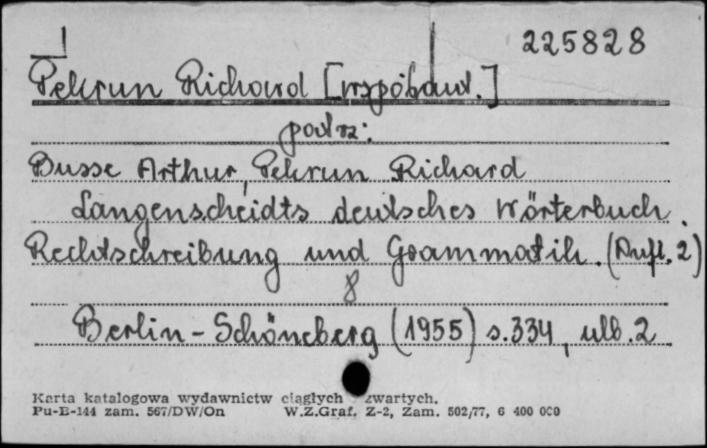 225828
Pekrun Richard [współaut.]
patrz:
Busse Arthur, Pekrun Richard
Langenscheidts deutsches Wörterbuch.
Rechtschreibung und Grammatik. (Aufl. 2)
8
Berlin-Schöneberg (1955) s. 334, ulb. 2
Karta katalogowa wydawnictw ciągłych zwartych.
Pu-B-144 zam. 567/DW/On W.Z.Graf. Z-2, Zam. 502/77, 6 400 000